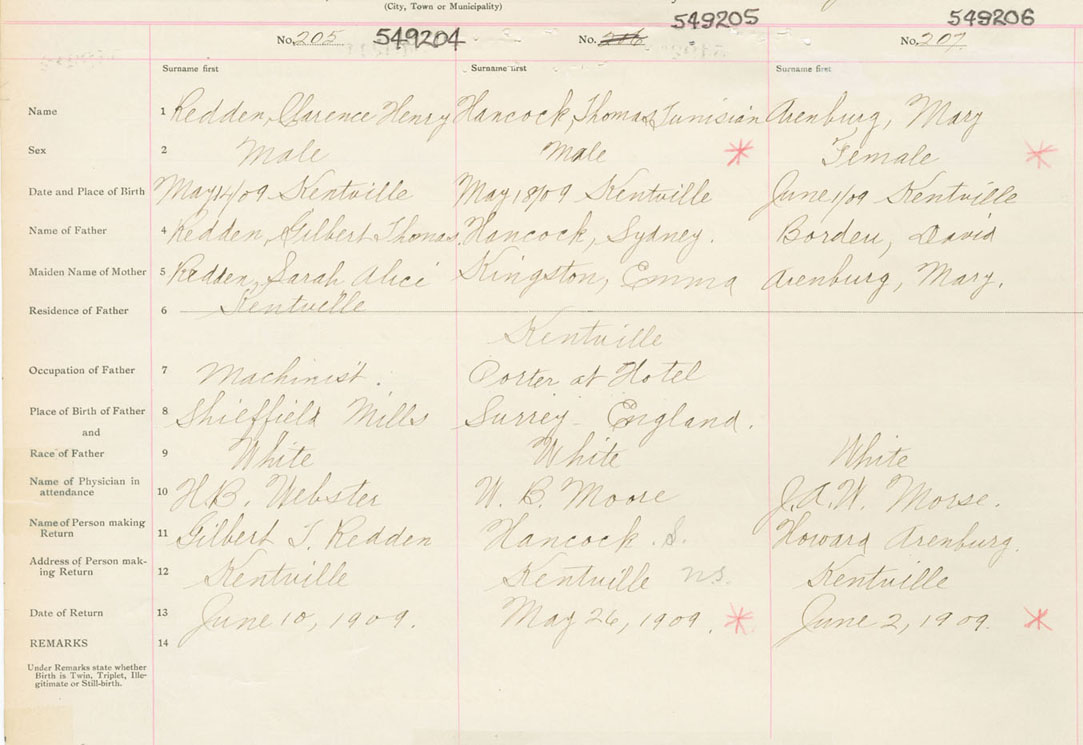 (City, Town or Municipality)
No. 205 549204 No. 206 549205 No. 207 549206
Surname first Surname first Surname first
Name 1 Redden, Clarence Henry Hancock, Thomas Tunisian Arenburg, Mary
Sex 2 Male Male * Female *
Date and Place of Birth 3 May 14/09 Kentville May 18/09 Kentville June 1/09 Kentville
Name of Father 4 Redden, Gilbert Thomas. Hancock, Sydney. Borden, David
Maiden Name of Mother 5 Redden, Sarah Alice Kingston, Emma Arenburg, Mary.
Residence of Father 6 Kentville Kentville
Occupation of Father 7 Machinist. Porter at Hotel
Place of Birth of Father 8 Shieffield Mills Surrey England.
and
Race of Father 9 White White White
Name of Physician in attendance 10 H.B. Webster W. B. Moore J.A.W. Morse.
Name of Person making Return 11 Gilbert T. Redden Hancock S. Howard Arenburg.
Address of Person mak-ing Return 12 Kentville Kentville N.S. Kentville
Date of Return 13 June 10, 1909. May 26, 1909. * June 2, 1909. *
REMARKS 14
Under Remarks state whether
Birth is Twin, Triplet, Ille-
gitimate or Still-birth.